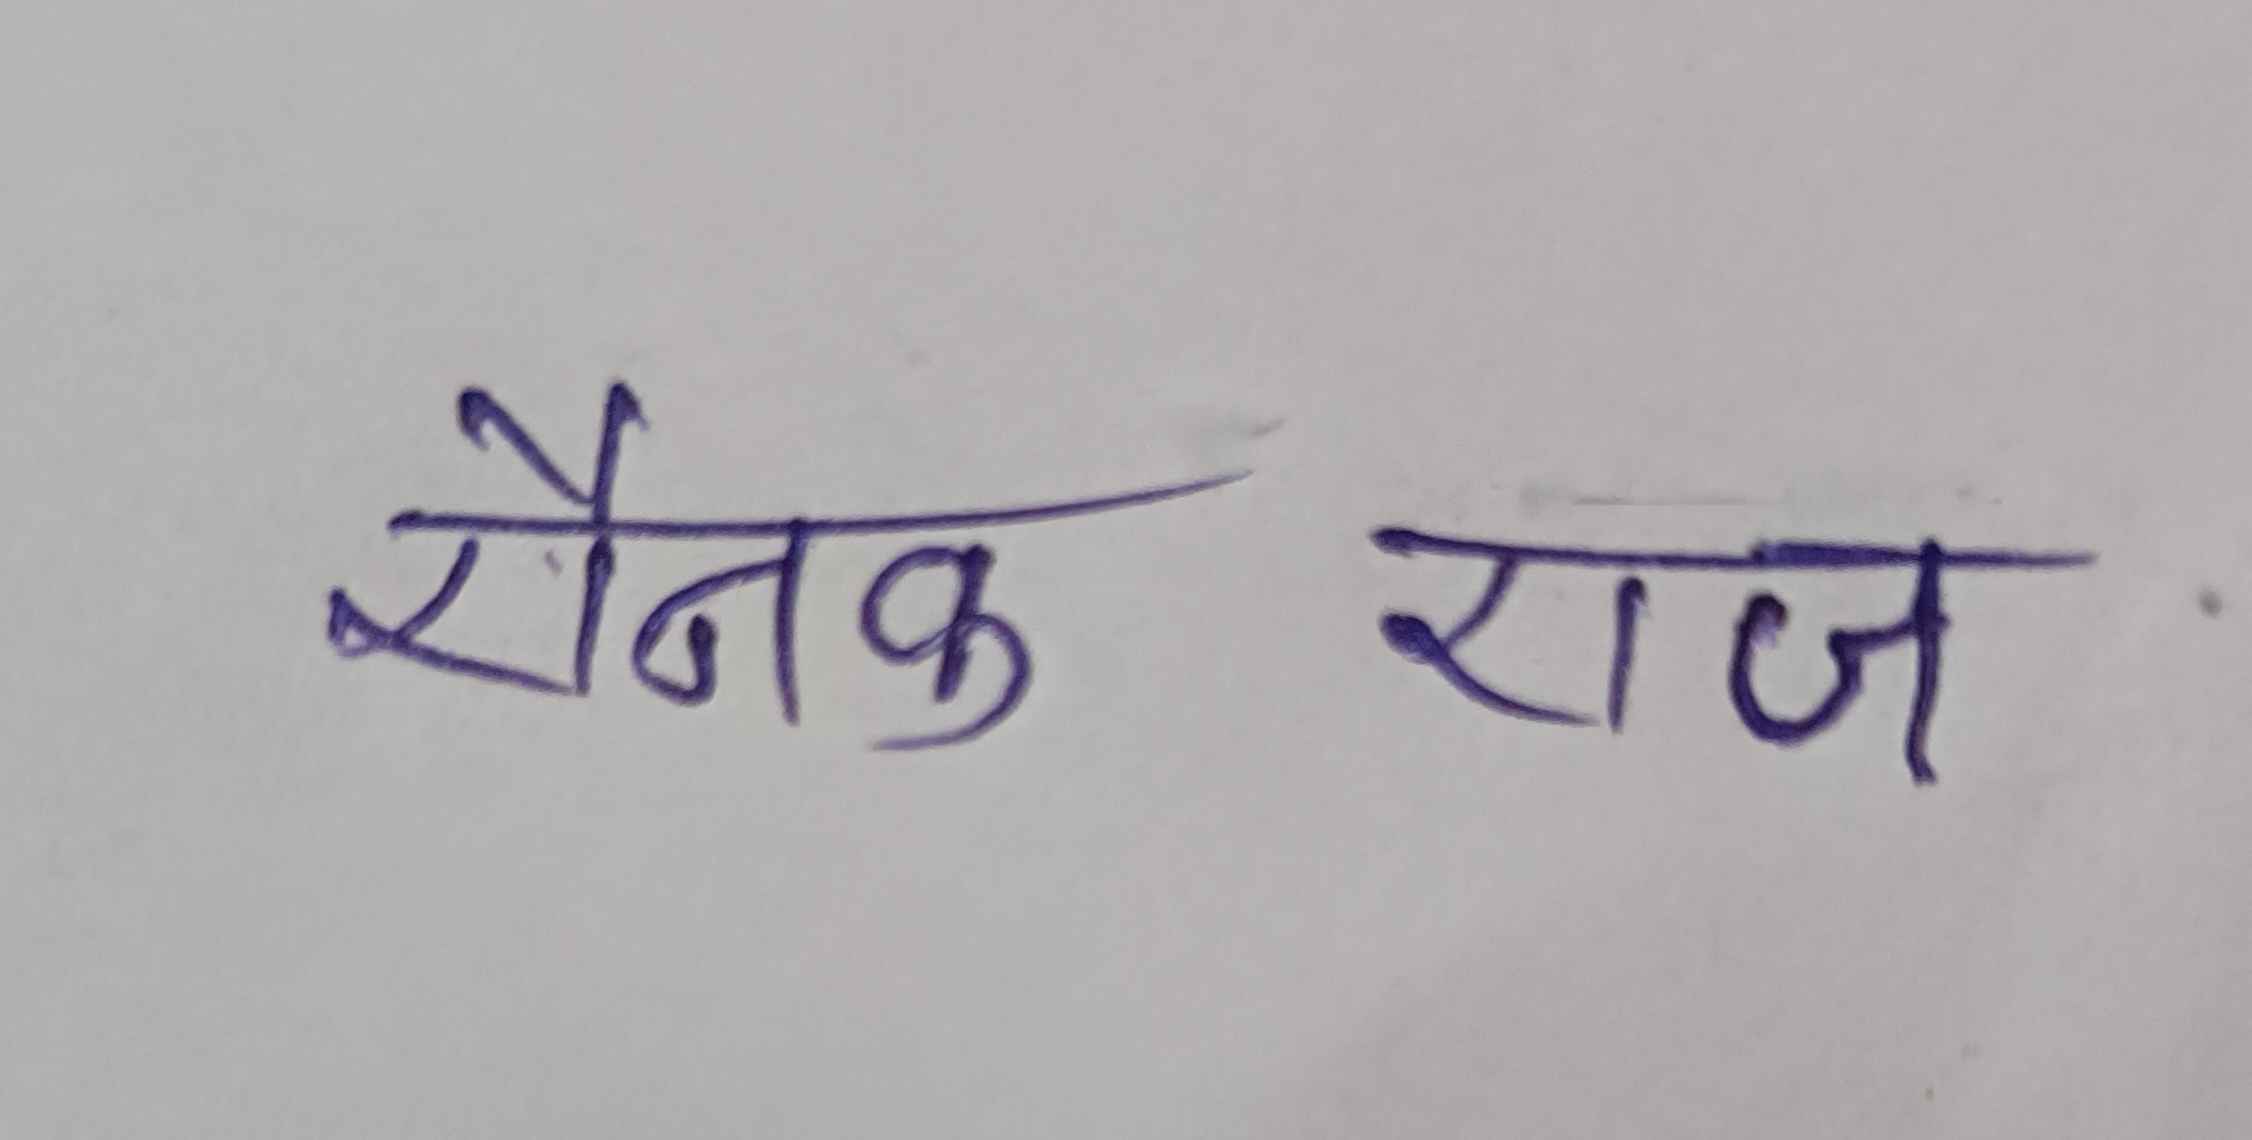 रौनक राज